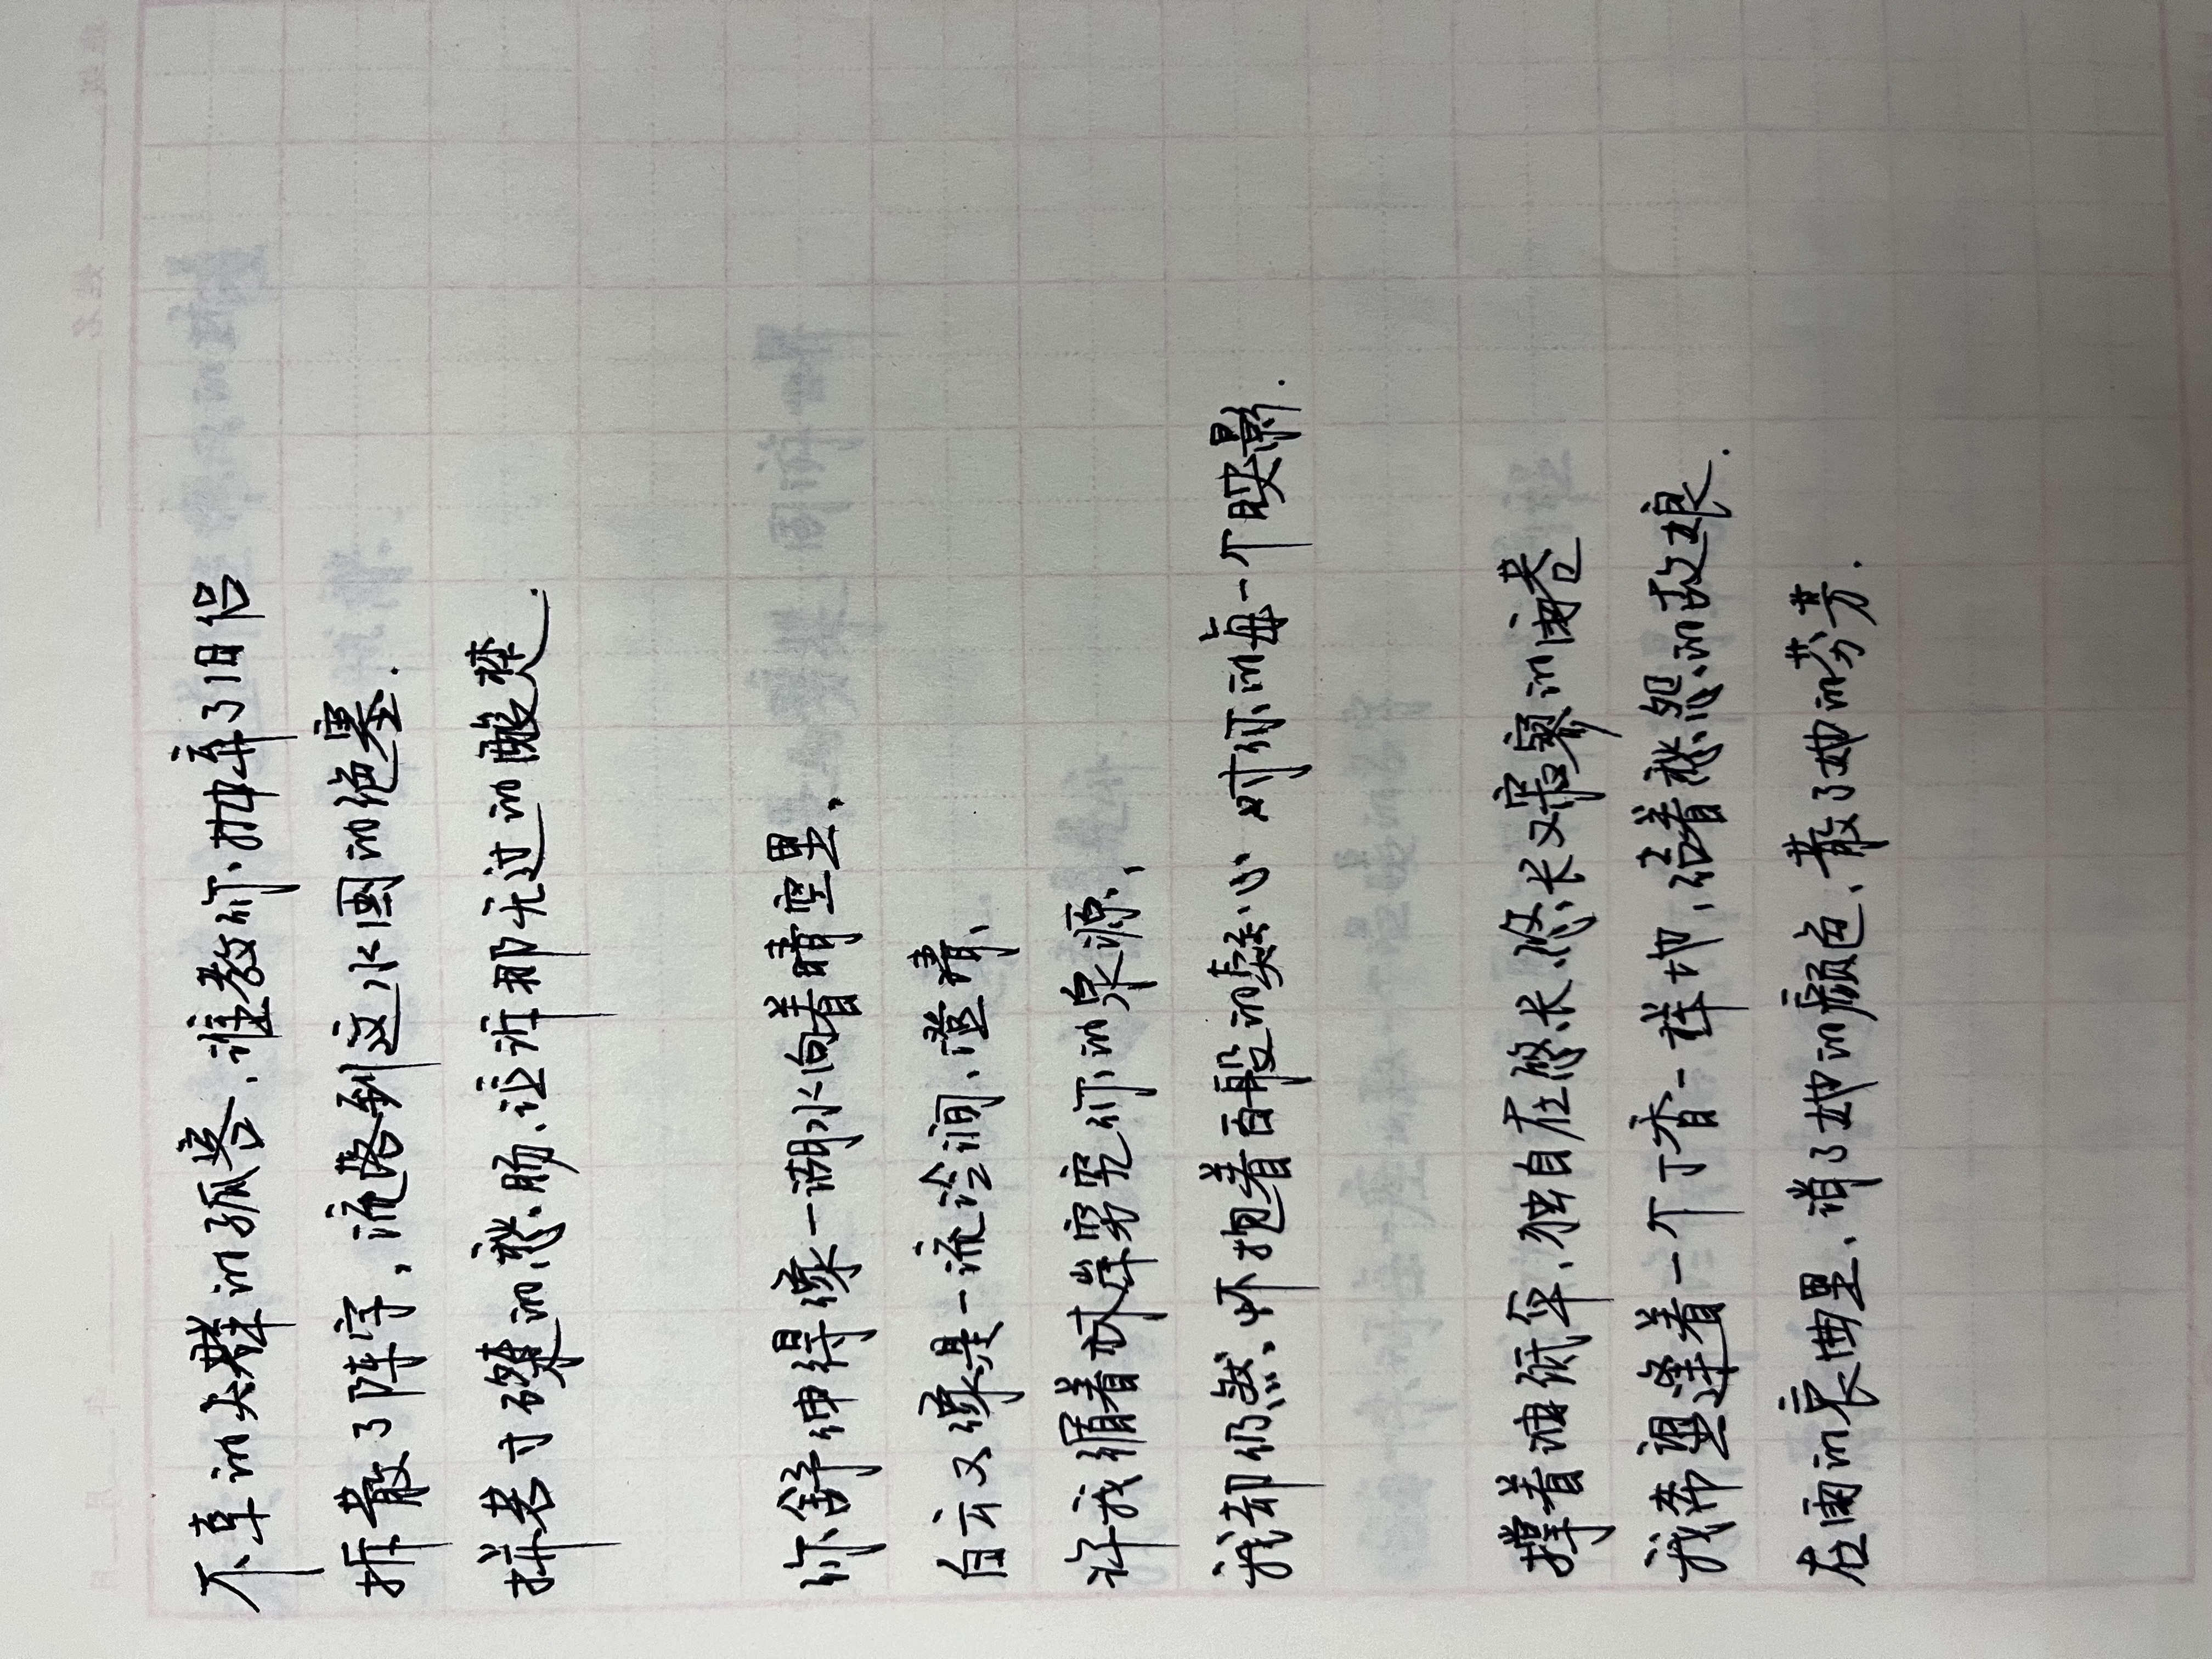 不幸的失群的孤客,谁教你抛弃了旧侣
拆散了阵字,流落到这水国的绝塞.
拼着寸磔的愁肠,泣诉那无过的酸楚.
你舒伸得像一湖水向着晴空里,
白云又像是一流冷涧,澄清,
许我循着林岸穷究你的泉源,
我却仍然、怀抱着百般的疑心 对你的每一个映影.
撑着油纸伞,独自在悠长、悠长又寂寥的雨巷
我希望逢着一个丁香一样地,结着愁怨的姑娘.
在雨的哀曲里,消了她的颜色,散了她的芬芳.